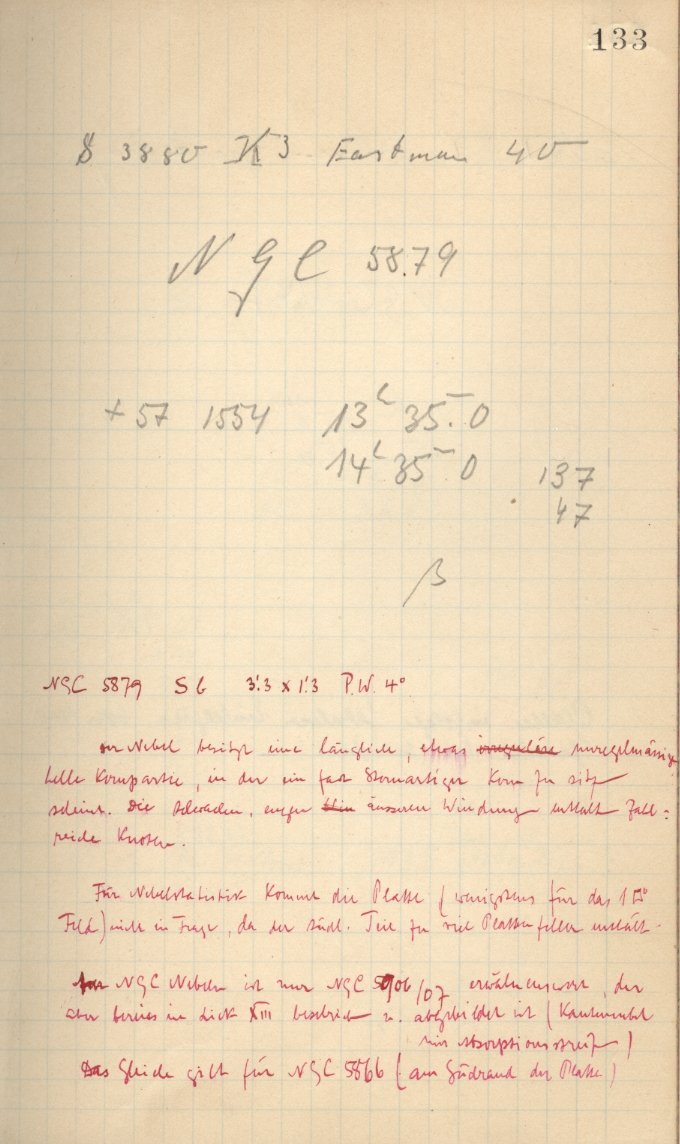 133
3880 Eastman 40
NGC 5879
+57 1554 13h 35m.0
14h 35m 0 137
47
β
NGC 5879 Sb 3'.3 x 1'.3 P.W. 4°
Der Nebel besitzt eine längliche, etwas irreguläre unregelmässig
helle Kernpartie, in der ein fast sternartiger Kern zu sitzen
scheint. Die schwachen, engen äusseren Windungen enthalten zahl=
reiche Knoten.
Für Nebelstatistik kommt die Platte (wenigstens für das 1 □°
Feld) nicht in Frage, da der südl. Teil zu viel Plattenfehler enthält.
NGC Nebeln ist nur NGC 5906/07 erwähnenswert, der
aber bereits in XIII beschrieben u. abgebildet ist (Kantennebel
mit Absorptionsstreifen)
Das Gleiche gilt für NGC 5866 (am Südrand der Platte)